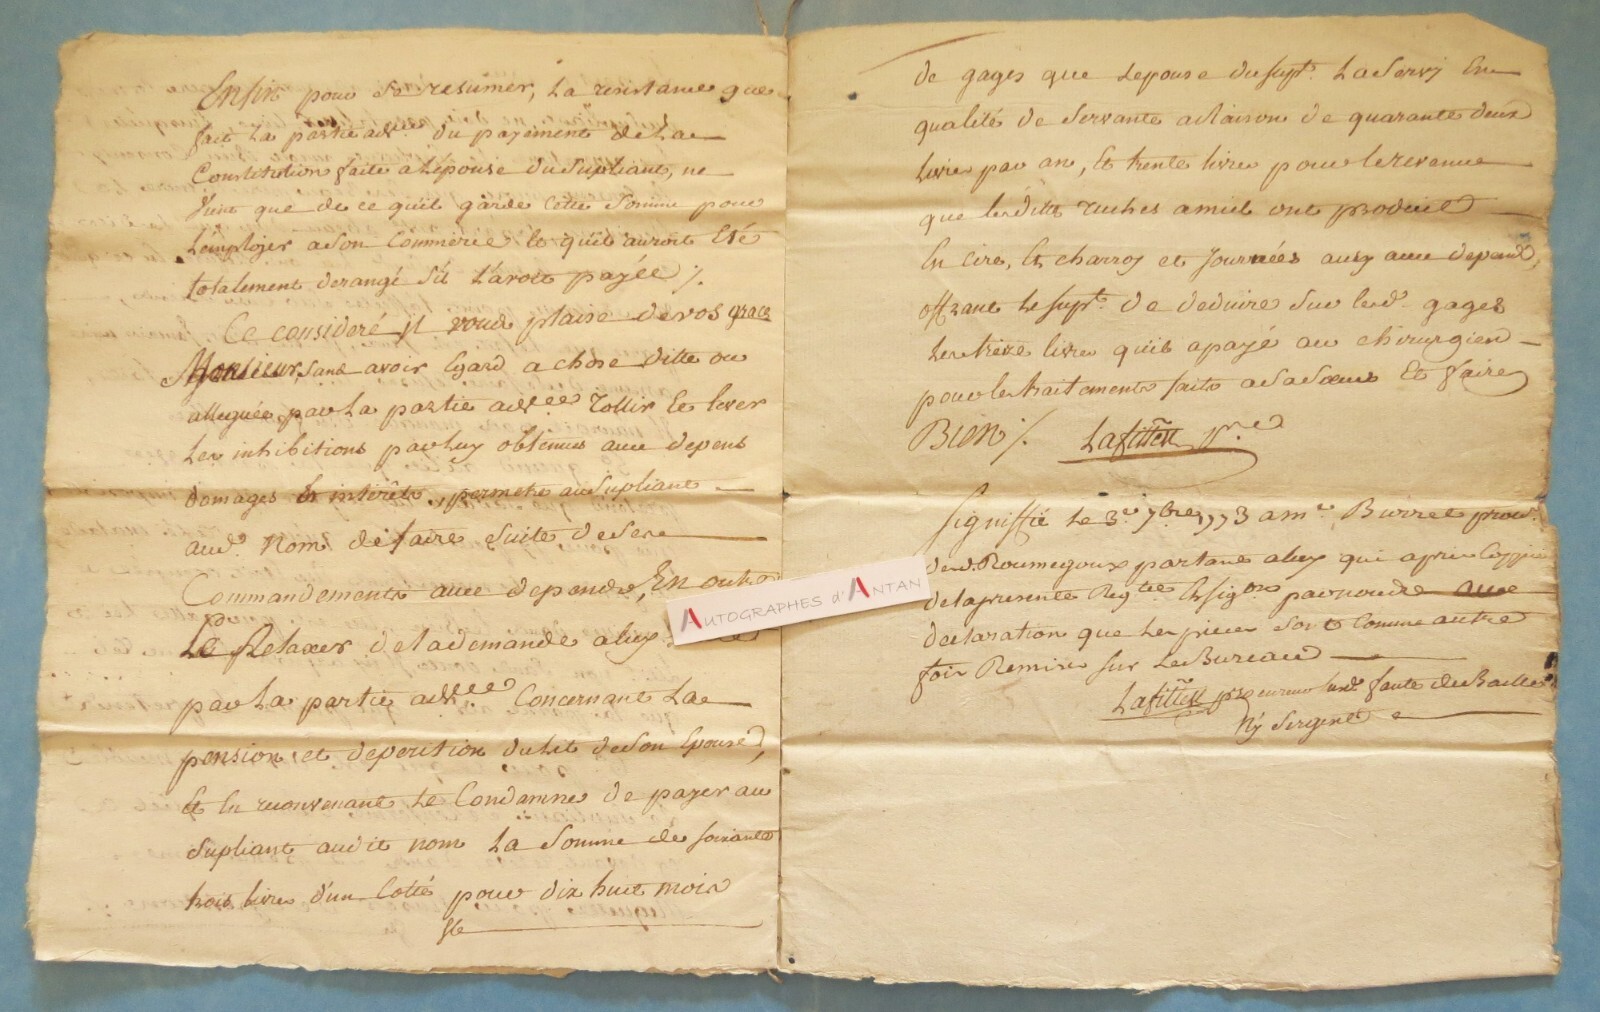 Enfin pour se resumer, la resistance que
fait la partie adv.ee du payement de la
Constitution faite a lepouse du supliant, ne
vient que de ce quil garde cette somme pour
lemployer a son Commerce et quil auroit Eté
totalement derangé sil l'avoit payée ./.
Ce consideré, il vous plaise de vos graces
Monsieur, sans avoir Egard a chose ditte ou
alleguée par la partie adv.ee Tollir et lever
les inhibitions par luy obtenues avec depens
domages et interêts, permetre au supliant
aud. nom de faire suite de ses
Commandements avec depends, En outre
Le Relaxer de la demande a luy
par la partie adv.ee Concernant la
pension et deperition du lit de son Epouse,
Et En reconvenant le Condamner de payer au
supliant audit nom la somme de soixante
trois livres d'un Cotté pour dix huit mois
de gages que lepouse du supt. la servi En
qualité de servante a Raison de quarante deux
livres par an, Et trente livres pour le revenu
que lesdittes ruches a miel ont produit
En cire, Et charroy et journées aussy avec depends,
offrant le supt. de deduire sur lesd. gages
les treize livres quil a payé au chirurgien
pour les traitements faits a sa soeur Et faires
Bien ./. Lafitten pr.
Signiffié le 3e 7bre 1773 a me. Burret proc.
dud. Roumegoux partant a luy qui apres Coppie
de la presente Reqtte Et sigon pour repondre avec
declaration que les pieces sont Comme autre
fois Remises sur le Bureau
Lafitten procureur susd. faute de Bailles
Ny sergent
AUTOGRAPHES d'ANTAN